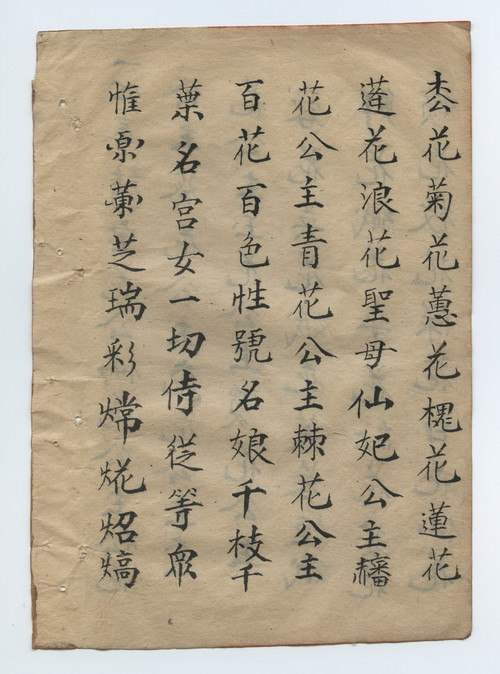 枩花菊花蕙花槐花蓮花
蓬花浪花聖母仙妃公主
花公主青花公主棘花公主
百花百色性號名娘千枝千
葉名宮女一切侍從等眾
惟蘭芝瑞彩